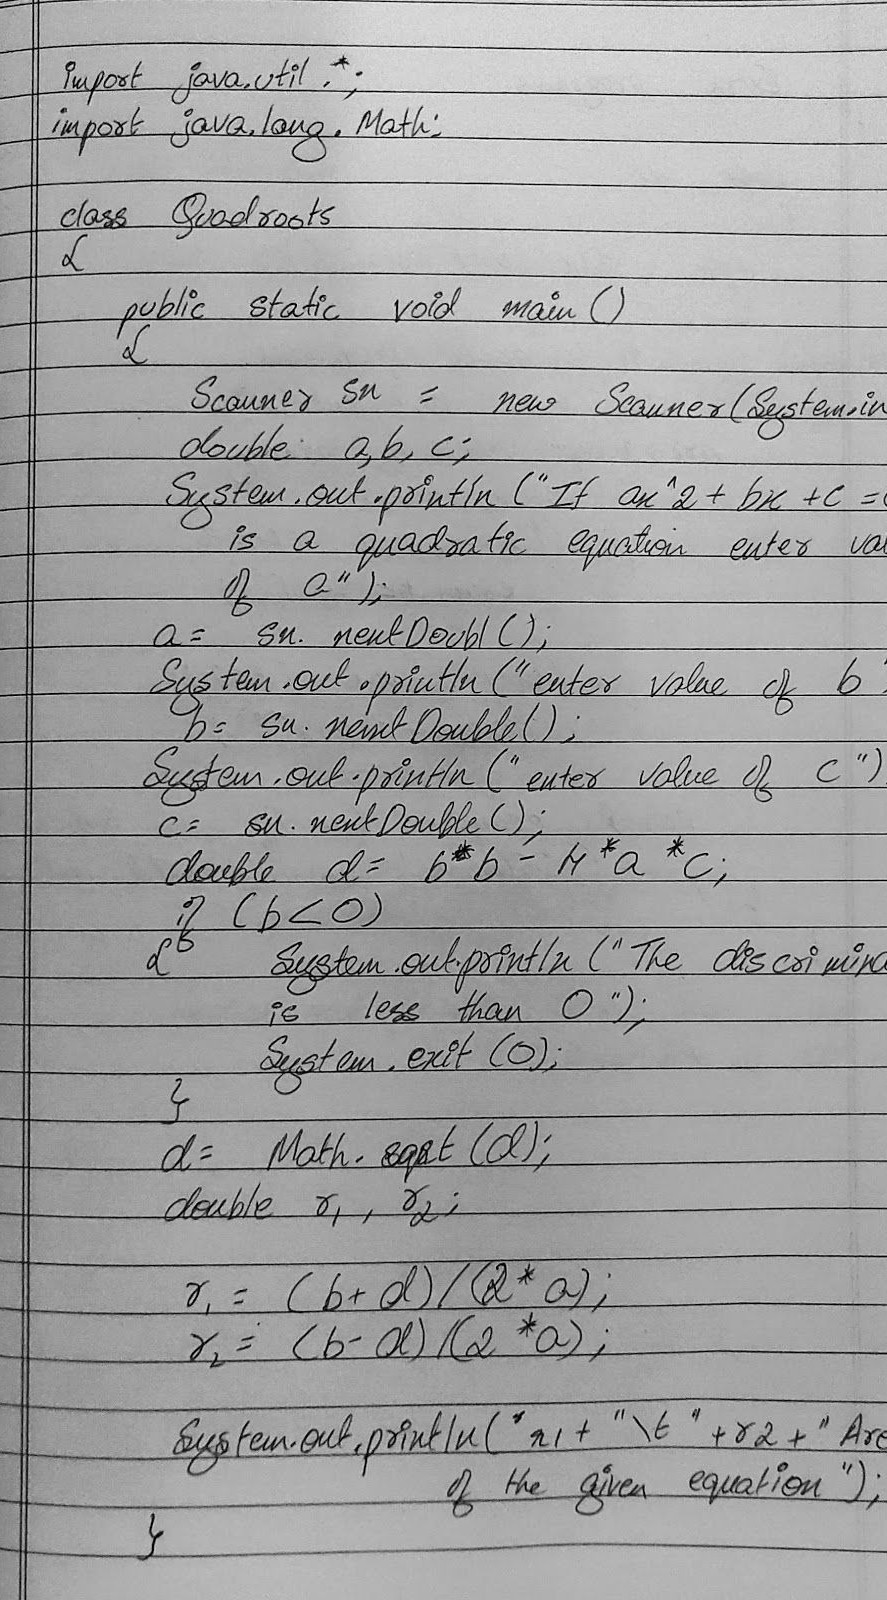 import java.util.*;
import java.lang.Math;
class Quadroots
{
public static void main()
{
Scanner sn = new Scanner(System.in
double a,b, c;
System.out.println ("If ax^2 + bx + c =
is a quadratic equation enter val
of a");
a= sn. nextDoubl();
System.out.println ("enter value of b"
b= sn. nextDouble();
System.out.println ("enter value of c")
c= sn. nextDouble();
double d= b*b - 4*a *c;
if (b<0)
{ System.out.println ("The discrimina
is less than 0");
System.exit (0);
}
d= Math. sqrt (d);
double r1, r2;
r1 = (b+d)/(2*a);
r2 = (b-d)/(2*a);
System.out.println("r1+ "\t" +r2 +" Are
of the given equation");
}